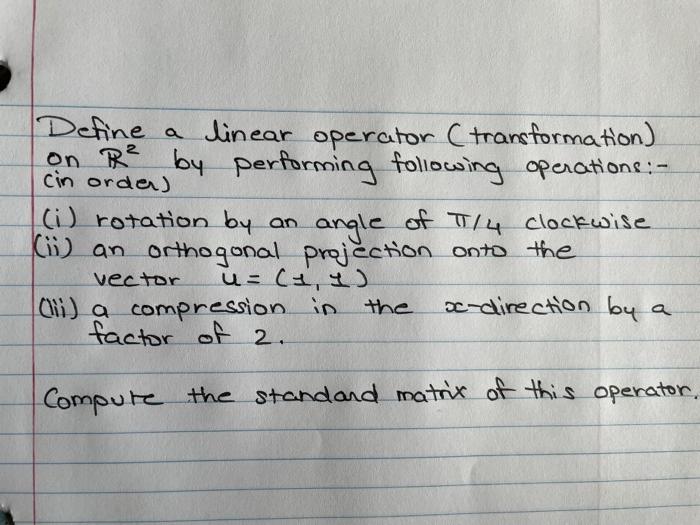 Define a linear operator (transformation)
on ℝ² by performing following operations:-
(in order)
(i) rotation by an angle of π/4 clockwise
(ii) an orthogonal projection onto the
vector u = (1, 1)
(iii) a compression in the x-direction by a
factor of 2.
Compute the standard matrix of this operator.